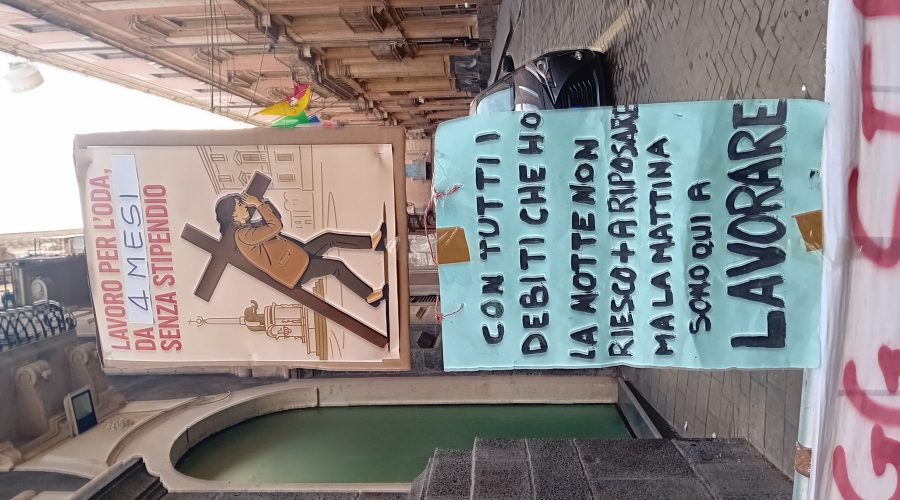 LAVORO PER L'ODA,
DA 4 MESI
SENZA STIPENDIO
CON TUTTI I
DEBITI CHE HO
LA NOTTE NON
RIESCO + A RIPOSARE
MA LA MATTINA
SONO QUI A
LAVORARE